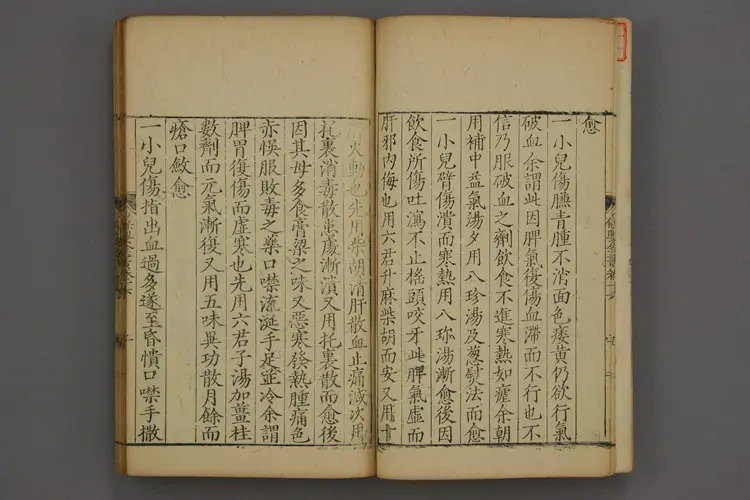 愈
一小兒傷臁青腫不消面色痿黃仍欲行氣
破血余謂此因脾氣復傷血滯而不行也不
信乃服破血之劑飲食不進寒熱如瘧余朝
用補中益氣湯夕用八珍湯及葱熨法而愈
一小兒臂傷潰而寒熱用八珎湯漸愈後因
飲食所傷吐瀉不止搖頭咬牙此脾氣虛而
肝邪內侮也用六君升麻柴胡而安又用
火動也先用柴胡清肝散血止痛減次用
托裏消毒散患處漸潰又用托裏散而愈後
因其母多食膏粱之味又惡寒發熱腫痛色
赤悞服敗毒之藥口噤流涎手足並冷余謂
脾胃復傷而虛寒也先用六君子湯加薑桂
數劑而元氣漸復又用五味異功散月餘而
瘡口斂愈
一小兒傷指出血過多遂至昏憒口噤手撒